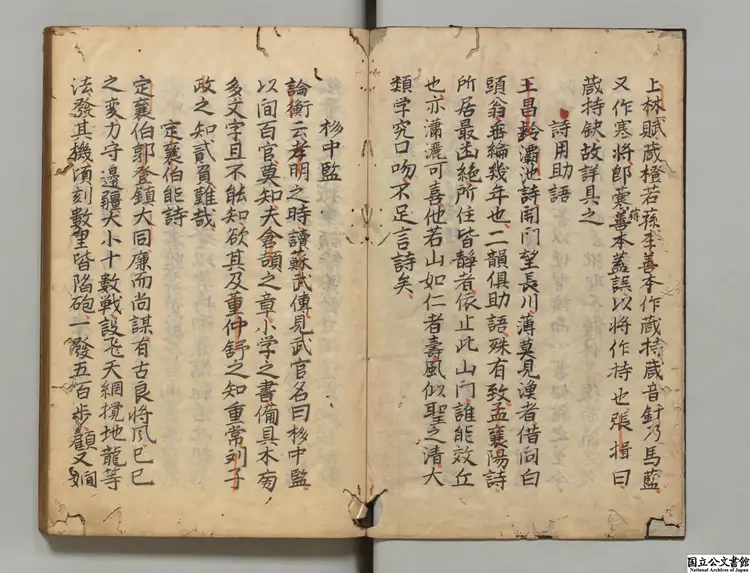 上林賦葴橙若蓀李善本作葴持葴音針乃馬藍
又作寒將郎蔣襄善本蓋誤以將作持也張揖曰
葴持缺故詳具之
詩用助語
王昌齡灞池詩開門望長川薄莫見漁者借問白
頭翁垂綸幾年也二韻俱助語殊有致孟襄陽詩
所居最幽絕所住皆靜者依止此山门誰能效丘
也亦瀟灑可喜他若山如仁者壽風似聖之清大
類学究口吻不足言詩矣
栘中監
論衡云孝明之時讀蘇武傳見武官名曰栘中監
以问百官莫知夫倉頡之章小学之書備具木旁
多文字且不能知欲其及董仲舒之知重常刘子
政之知貳負難哉
定襄伯能詩
定襄伯郭登鎮大同廉而尚謀有古良將风已巳
之変力守邊疆大小十數戦設飞天網攪地龍等
法發其機頃刻數里皆陷砲一發五百步顧又嫺
国立公文書館
National Archives of Japan